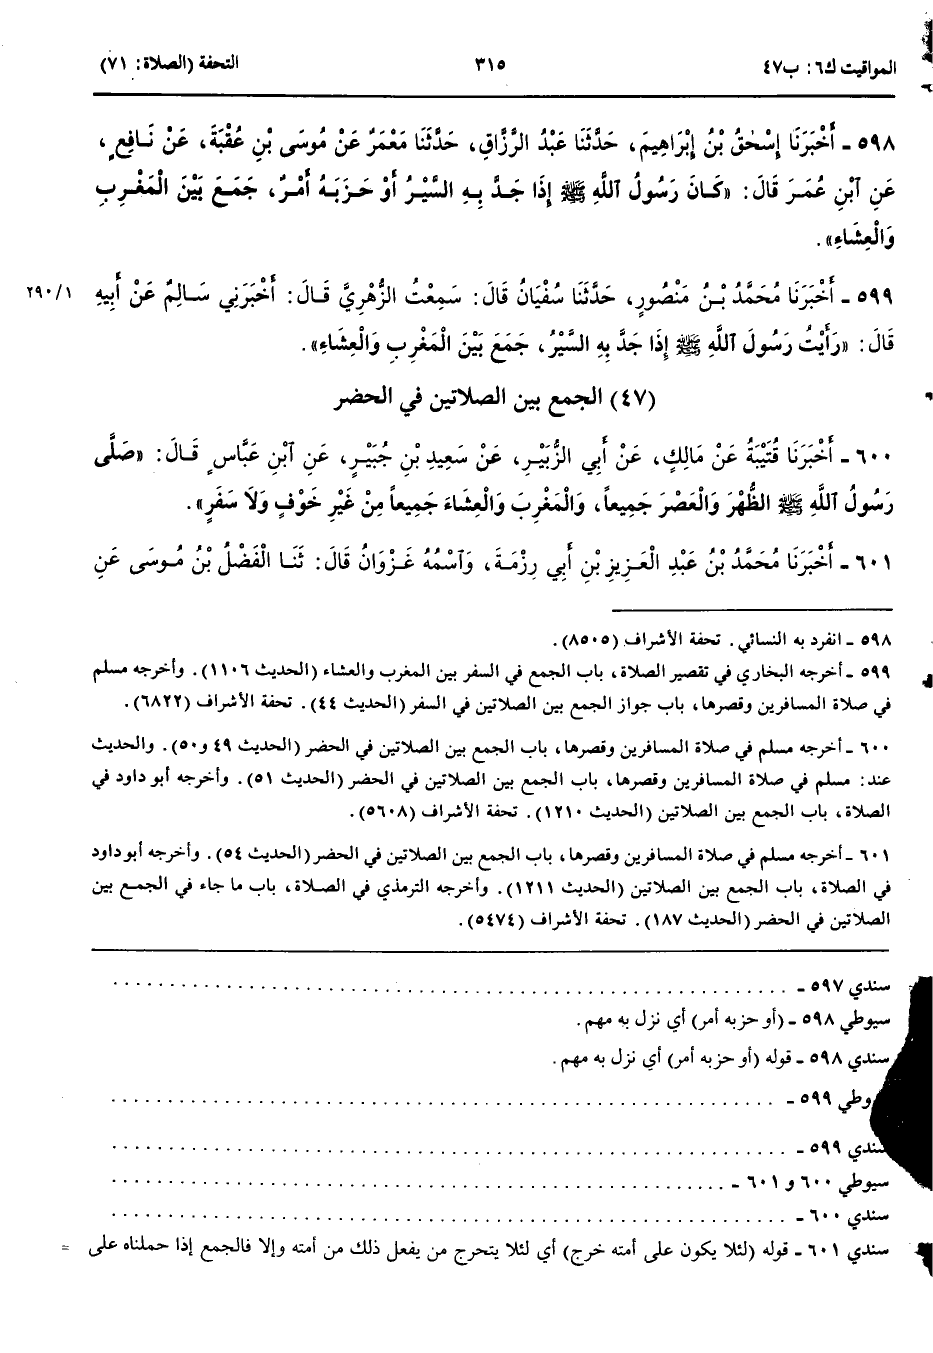 المواقيت ك٦: ب٤٧ ٣١٥ التحفة (الصلاة: ٧١)
٥٩٨ - أَخْبَرَنَا إِسْحٰقُ بْنُ إِبْرَاهِيمَ، حَدَّثَنَا عَبْدُ الرَّزَّاقِ، حَدَّثَنَا مَعْمَرٌ عَنْ مُوسَى بْنِ عُقْبَةَ، عَنْ نَافِعٍ،
عَنِ ٱبْنِ عُمَرَ قَالَ: «كَانَ رَسُولُ ٱللَّهِ ﷺ إِذَا جَدَّ بِهِ السَّيْرُ أَوْ حَزَبَهُ أَمْرٌ، جَمَعَ بَيْنَ الْمَغْرِبِ
وَالْعِشَاءِ».
٥٩٩ - أَخْبَرَنَا مُحَمَّدُ بْنُ مَنْصُورٍ، حَدَّثَنَا سُفْيَانُ قَالَ: سَمِعْتُ الزُّهْرِيَّ قَالَ: أَخْبَرَنِي سَالِمٌ عَنْ أَبِيهِ ٢٩٠/١
قَالَ: «رَأَيْتُ رَسُولَ ٱللَّهِ ﷺ إِذَا جَدَّ بِهِ السَّيْرُ، جَمَعَ بَيْنَ الْمَغْرِبِ وَالْعِشَاءِ».
(٤٧) الجمع بين الصلاتين في الحضر
٦٠٠ - أَخْبَرَنَا قُتَيْبَةُ عَنْ مَالِكٍ، عَنْ أَبِي الزُّبَيْرِ، عَنْ سَعِيدِ بْنِ جُبَيْرٍ، عَنِ ٱبْنِ عَبَّاسٍ قَالَ: «صَلَّى
رَسُولُ ٱللَّهِ ﷺ الظُّهْرَ وَالْعَصْرَ جَمِيعاً، وَالْمَغْرِبَ وَالْعِشَاءَ جَمِيعاً مِنْ غَيْرِ خَوْفٍ وَلَا سَفَرٍ».
٦٠١ - أَخْبَرَنَا مُحَمَّدُ بْنُ عَبْدِ الْعَزِيزِ بْنِ أَبِي رِزْمَةَ، وَٱسْمُهُ غَزْوَانُ قَالَ: ثَنَا الْفَضْلُ بْنُ مُوسَى عَنِ
٥٩٨ - انفرد به النسائي. تحفة الأشراف (٨٥٠٥).
٥٩٩ - أخرجه البخاري في تقصير الصلاة، باب الجمع في السفر بين المغرب والعشاء (الحديث ١١٠٦). وأخرجه مسلم
في صلاة المسافرين وقصرها، باب جواز الجمع بين الصلاتين في السفر (الحديث ٤٤). تحفة الأشراف (٦٨٢٢).
٦٠٠ - أخرجه مسلم في صلاة المسافرين وقصرها، باب الجمع بين الصلاتين في الحضر (الحديث ٤٩ و٥٠). والحديث
عند: مسلم في صلاة المسافرين وقصرها، باب الجمع بين الصلاتين في الحضر (الحديث ٥١). وأخرجه أبو داود في
الصلاة، باب الجمع بين الصلاتين (الحديث ١٢١٠). تحفة الأشراف (٥٦٠٨).
٦٠١ - أخرجه مسلم في صلاة المسافرين وقصرها، باب الجمع بين الصلاتين في الحضر (الحديث ٥٤). وأخرجه أبو داود
في الصلاة، باب الجمع بين الصلاتين (الحديث ١٢١١). وأخرجه الترمذي في الصلاة، باب ما جاء في الجمع بين
الصلاتين في الحضر (الحديث ١٨٧). تحفة الأشراف (٥٤٧٤).
سندي ٥٩٧ - . . . . . . . . . . . . . . . . . . . .
سيوطي ٥٩٨ - (أو حزبه أمر) أي نزل به مهم.
سندي ٥٩٨ - قوله (أو حزبه أمر) أي نزل به مهم.
وطي ٥٩٩ - . . . . . . . . . . . . . . . . . . . .
سندي ٥٩٩ - . . . . . . . . . . . . . . . . . . . .
سيوطي ٦٠٠ و ٦٠١ - . . . . . . . . . . . . . . . . . . . .
سندي ٦٠٠ - . . . . . . . . . . . . . . . . . . . .
سندي ٦٠١ - قوله (لئلا يكون على أمته خرج) أي لئلا يتحرج من يفعل ذلك من أمته وإلا فالجمع إذا حملناه على =